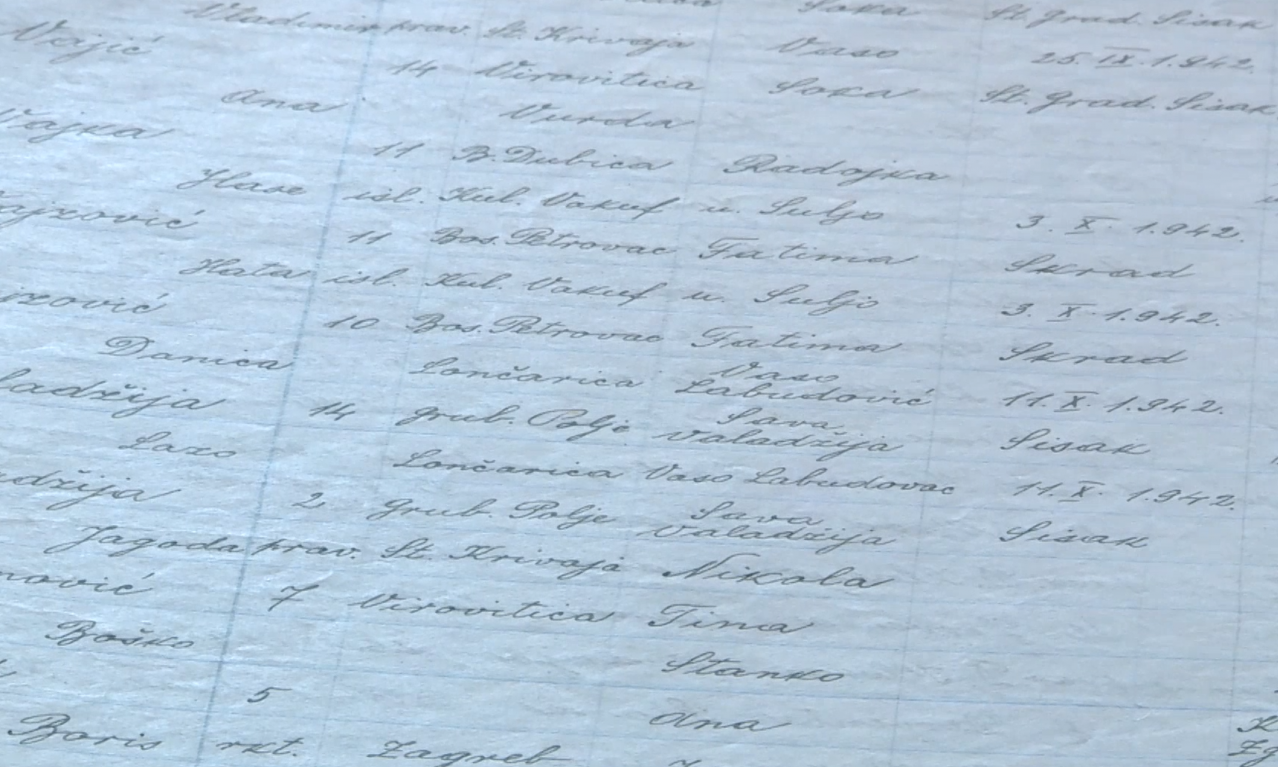 Soka St. Grad. Sisak
Vladimir prav. St. Krivaja Vaso 25. IX. 1942.
Vajić 14 Virovitica Soka St. Grad. Sisak
Ana Vurda
Vajka 11 B. Dubica Radojka
Hase isl. Kul. Vakuf u. Suljo 3. X. 1942.
11 Bos. Petrovac Fatima Skrad
Hata isl. Kul. Vakuf u. Suljo 3. X. 1942.
10 Bos. Petrovac Fatima Skrad
Danica Lončarica Vaso Labudović 11. X. 1942.
ladžija 14 Grub. Polje Sava Valadžija Sisak
Lazo Lončarica Vaso Labudovac 11. X. 1942.
adžija 2 Grub. Polje Sava Valadžija Sisak
Jagoda prav. St. Krivaja Nikola
nović 7 Virovitica Tina
Boško Stanko
5 Ana
Boris rkt. Zagreb